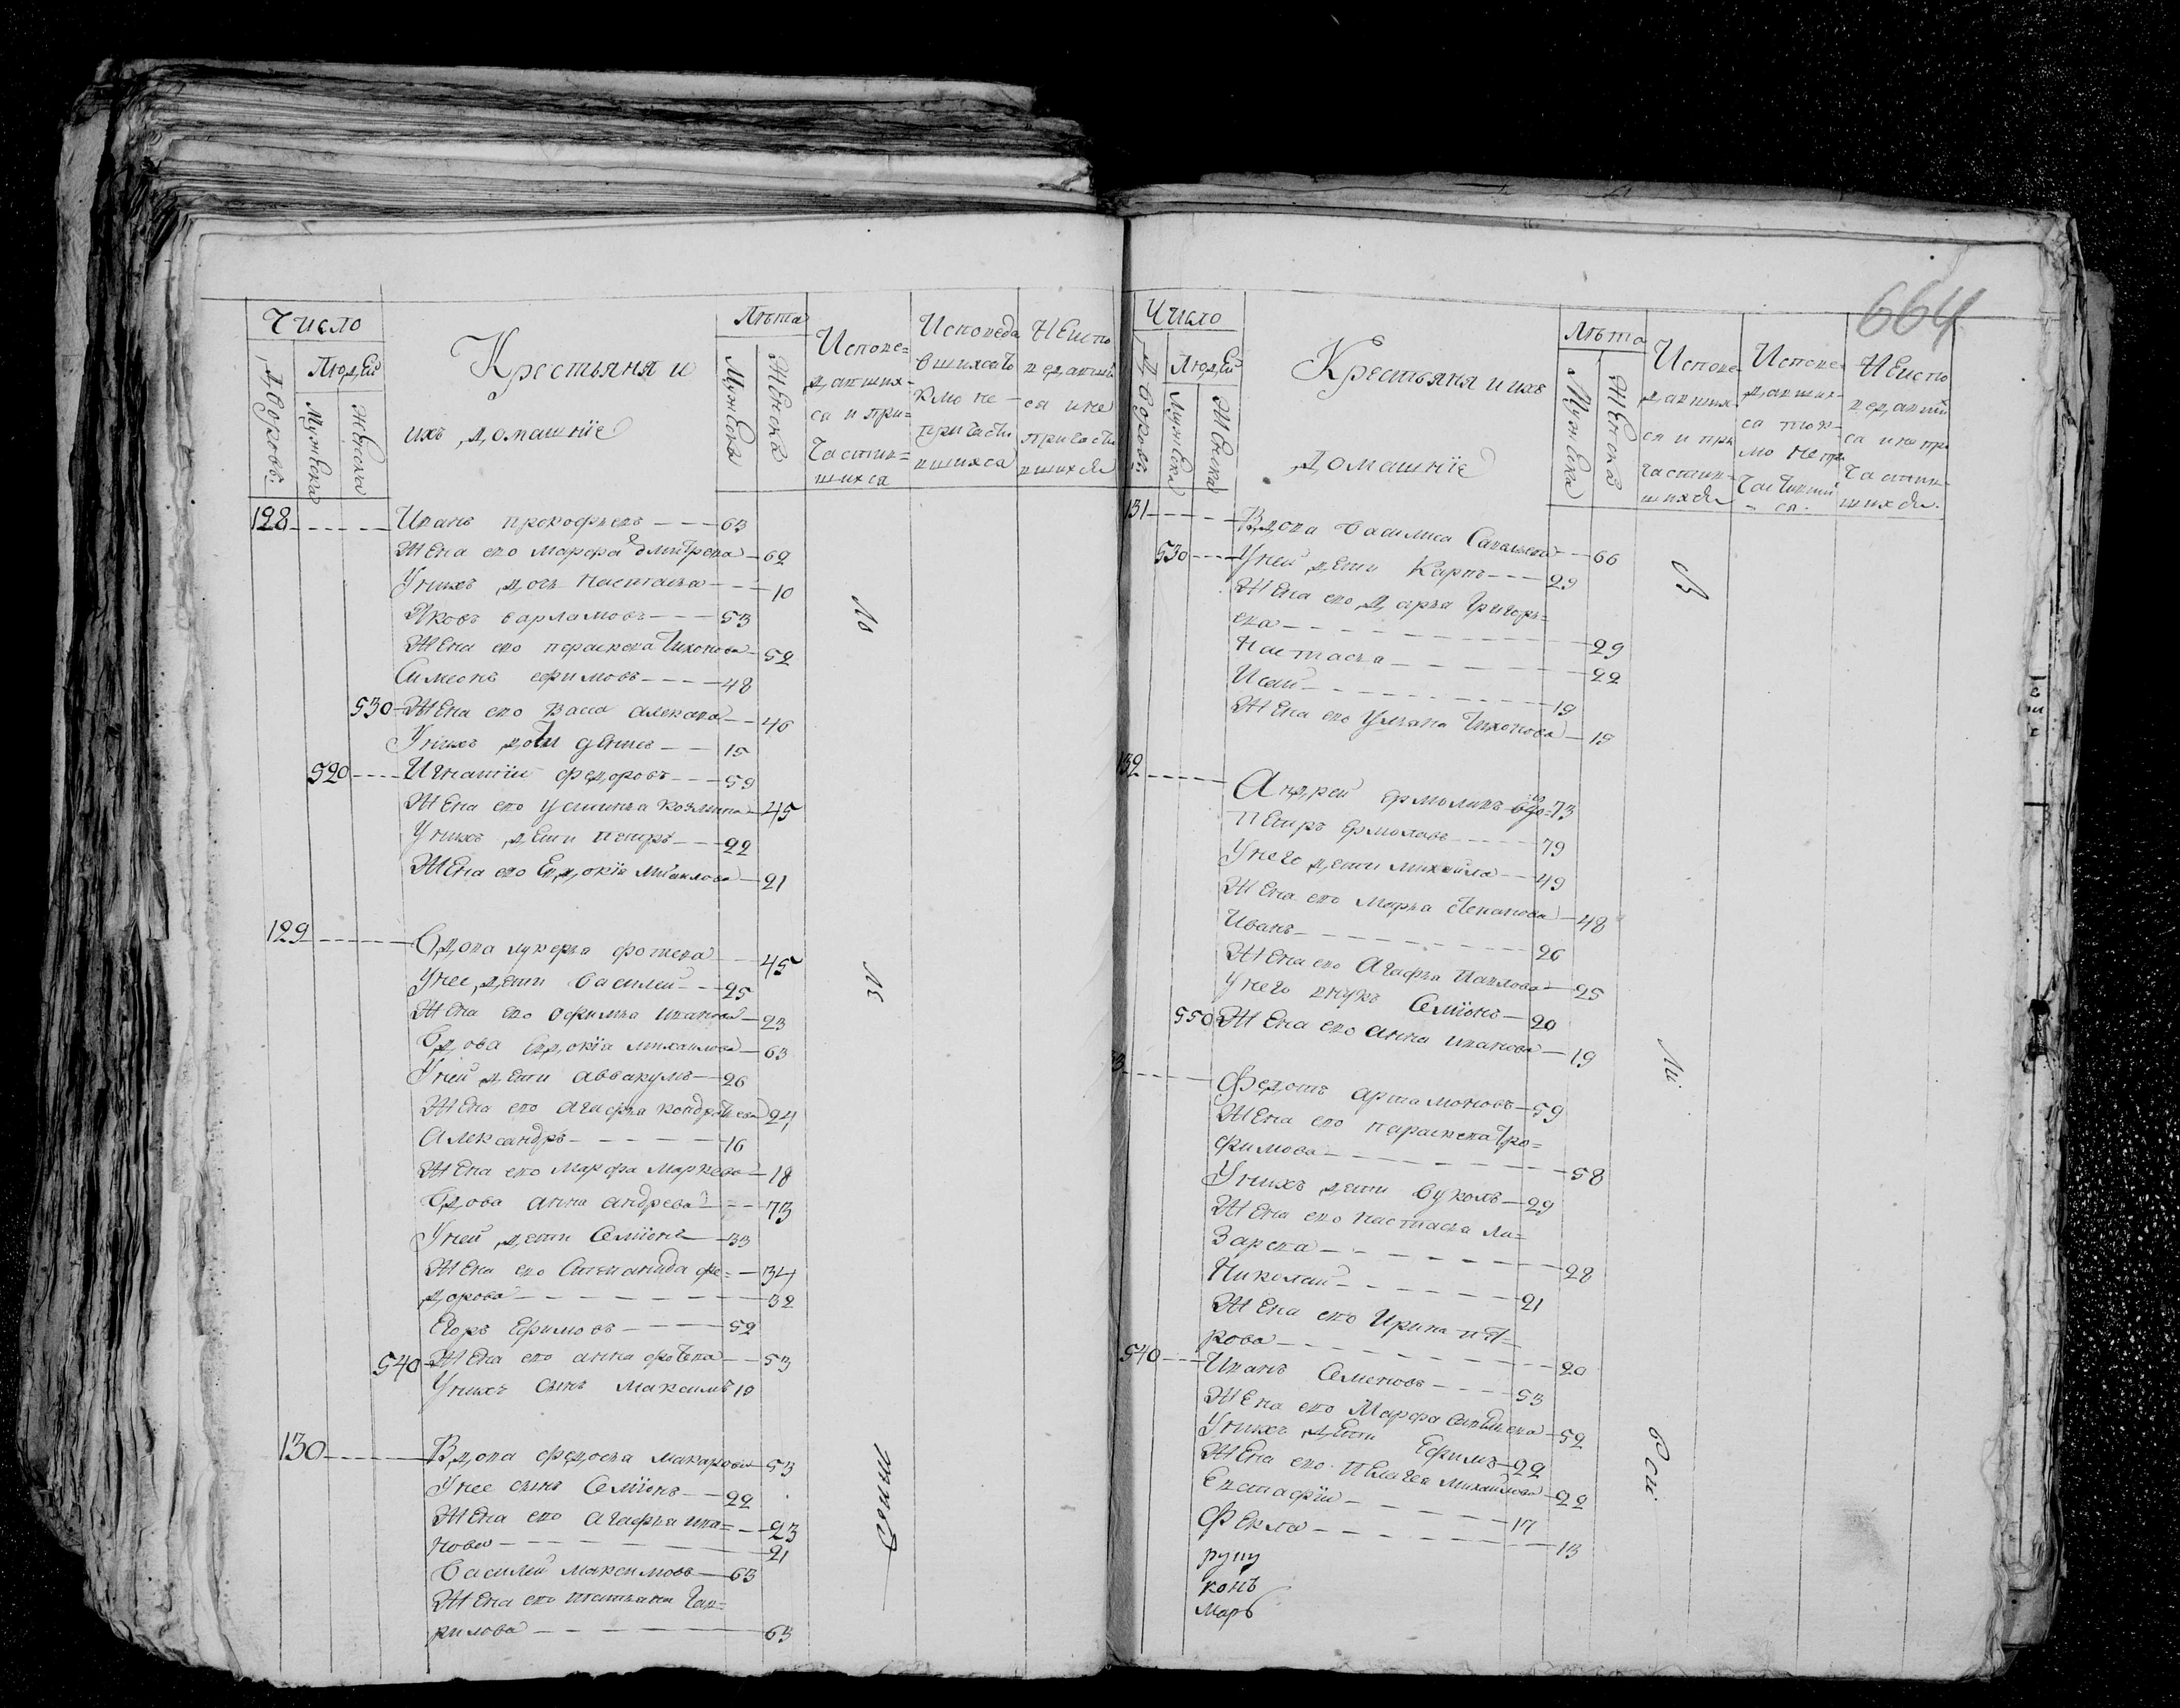 Число
Людей
Дворовъ
Мужеска
Женска
Крестьяня и
ихъ домашнїе
Лѣта
Мужеска
Женска
Испове=
давших
ся и при=
частив=
шихся
Исповеда
вшихсято
кмо не
причасти
вшихся
Неиспо
ведавши
ся и не
причасти
вшихся
128 Иванъ прокофьевъ 63
Жена ево марфа дмитрева 62
Унихъ дочь настасья 10
Яковъ варламовъ 53
Жена ево пераскева тихонова 52
Симионъ ефимовъ 48
530 Жена ево васса
46
Унихъ
15
520 Игнатїи федоровъ 59
Жена ево устинья козмина 45
Унихъ дети петръ 22
Жена ево Евдокїя михаилова 21
129 Вдова лукерья фотиева 45
Унее дети василеи 25
Жена ево офимья иванова 23
Вдова Евдокїя михаилова 63
Уней дети аввакумъ 26
Жена ево агафья кондратева 24
Александръ 16
Жена ево марфа маркова 18
Вдова анна андрева 73
Уней дети Семїонъ 33
Жена ево Степанида фе= 34
дорова 32
Егоръ Ефимовъ 52
540 Жена ево анна фотева 53
Унихъ сынъ максимъ 10
130 Вдова федосья макарова 53
Унее сынъ Семїонъ 22
Жена ево агафья ива= 23
нова 21
Василей максимовъ 63
Жена ево татьяна гав=
рилова 63
Ю
З
664
Число
Людей
Дворовъ
Мужеска
Женска
Крестьяня и ихъ
домашнїе
Лѣта
Мужеска
Женска
Испове
давших
ся и при
частив=
шихся
Испове
давших
ся ток=
мо не при
частивши
ся.
Неиспо
ведавши
ся и не при
частив=
шихся.
131 Вдова василиса Савельева 66
530 Уней дети Карпъ 29
Жена ево дарья григорь=
ева 29
Настасья 22
Исаи 19
Жена ево ульяна тихонова 19
132 Андрей ермолинъ 73
Петръ ермолаевъ 79
Унего дети михаила 49
Жена ево марья степанова 48
Иванъ 26
Жена ево Агафья Павлова 25
Унего внукъ Семїонъ 20
550 Жена ево анна иванова 19
3 Федотъ артамоновъ 59
Жена ево параскева тро=
фимова 58
Унихъ дети вуколъ 29
Жена ево настасья ла=
зарева 28
Николаи 21
Жена ево Ирина пѣт=
рова 20
540 Иванъ Семеновъ 53
Жена ево Марфа
52
Унихъ дети Ефимъ 22
Жена ево Пелагея михаилова 22
Евстафїи 17
Фекла 13
руку
конъ
марь
В
Ли.